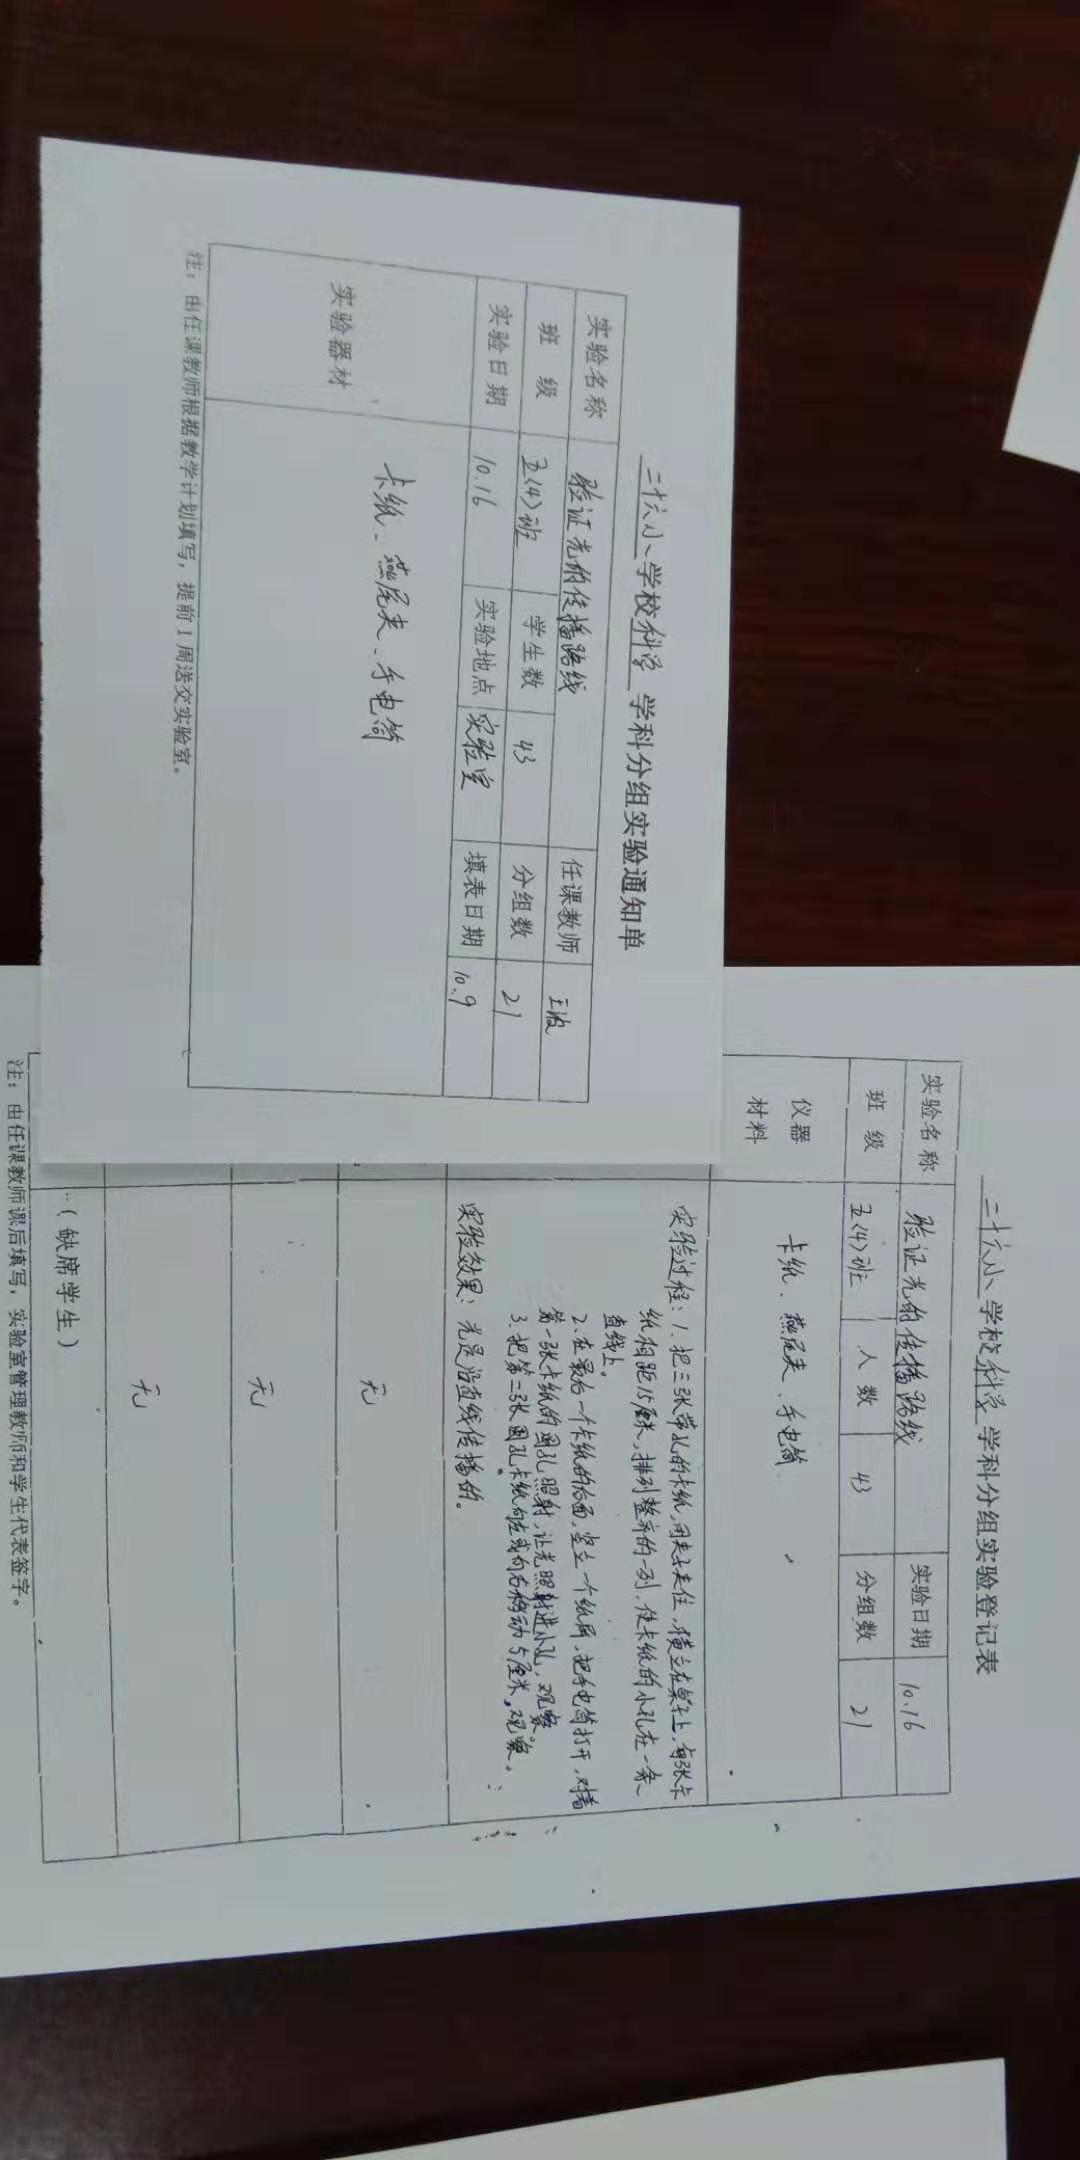 二十六小学校科学学科分组实验通知单
实验名称 验证光的传播路线 任课教师 王波
班级 五(4)班 学生数 43 分组数 21
实验日期 10.16 实验地点 实验室 填表日期 10.9
实验器材 卡纸、燕尾夹、手电筒
注：由任课教师根据教学计划填写，提前1周送交实验室。
二十六小学校科学学科分组实验登记表
实验名称 验证光的传播路线 实验日期 10.16
班级 五(4)班 人数 43 分组数 21
仪器
材料
卡纸、燕尾夹、手电筒
实验过程：1.把三张带孔的卡纸，用夹子夹住，横立在桌子上，每张卡
纸相距15厘米，排列整齐的一列，使卡纸的小孔在一条
直线上。
2.在最后一个卡纸的后面，竖立一个纸屏，把手电筒打开，对着
第一张卡纸的圆孔照射，让光照射进小孔，观察。
3.把第二张圆孔卡纸向左或向右移动5厘米，观察。
实验效果：光是沿直线传播的。
无
无
无
（缺席学生）
注：由任课教师课后填写，实验室管理教师和学生代表签字。